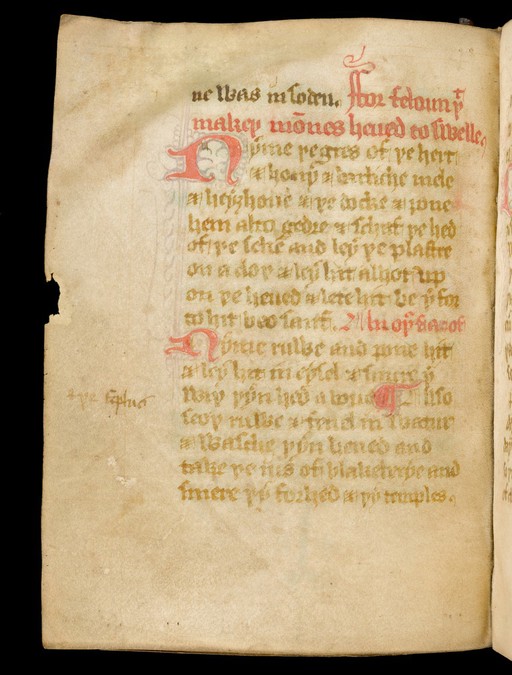 ne was in soden. Ffor feloun þt
makeþ mōnes heued to swelle.
Nyme þe gres of þe hert
& hony & berliche mele
& heyhoue & þe docke & pone
hem alto gedre & schaf þe hed
of þe seke and ley þe plastre
on a cloþ & ley hit al hot up
on þe heued & lete hit be þer for
to hit beo sauf. An oþer a cof
Nyme ruwe and pone hit
& ley hit in eysel & smere þy
wiþ þyn hed a boue ¶ Also
seoþ ruwe & fenel in watur
& wasche þyn heued and
take þe ius of and
smere þy forhed & þy temples.
& þe